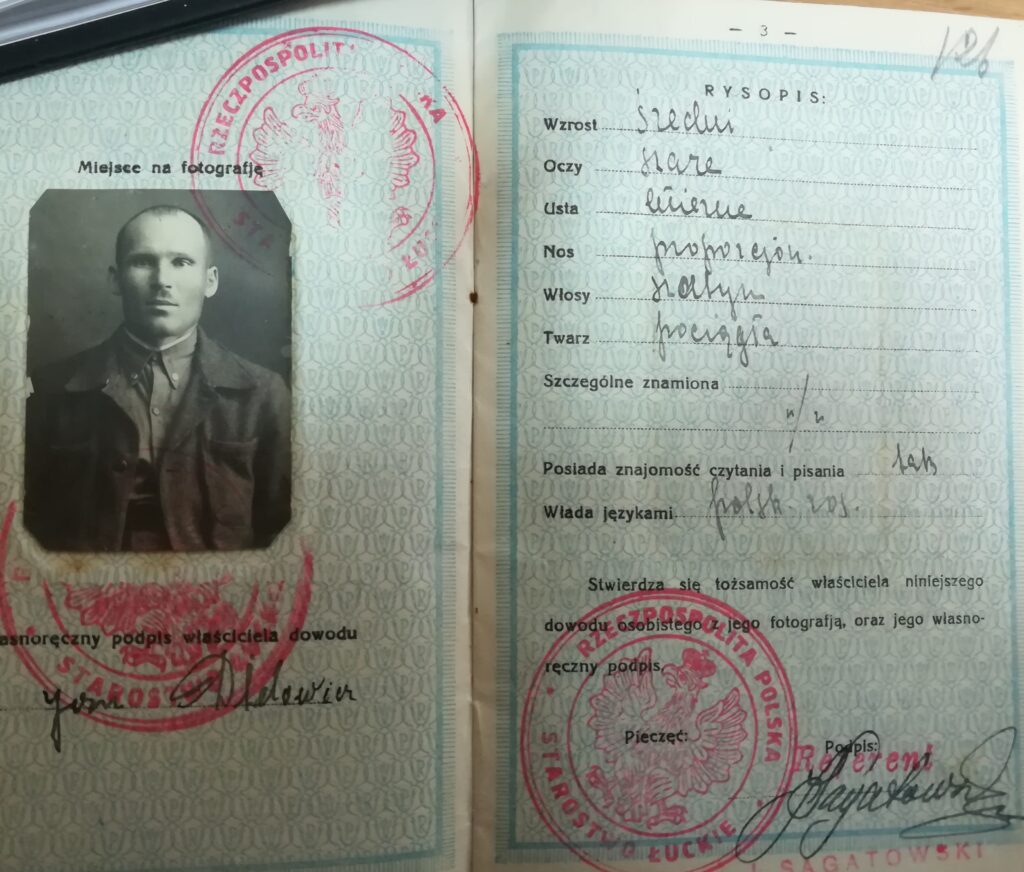 RZECZPOSPOLIT KA
STA
Miejsce na fotografję
asnoręczny podpis właściciela dowodu
STAROSTWO
- 3 -
126
RYSOPIS:
Wzrost średni
Oczy szare
Usta mierne
Nos proporcjon.
Włosy szatyn
Twarz pociągła
Szczególne znamiona
Posiada znajomość czytania i pisania tak
Włada językami polsk. ros.
Stwierdza się tożsamość właściciela niniejszego
dowodu osobistego z jego fotografją, oraz jego własno-
ręczny podpis.
RZECZPOSPOLITA POLSKA
STAROSTWO ŁUCKIE
Pieczęć: Podpis:
Referent
SAGATOWSKI